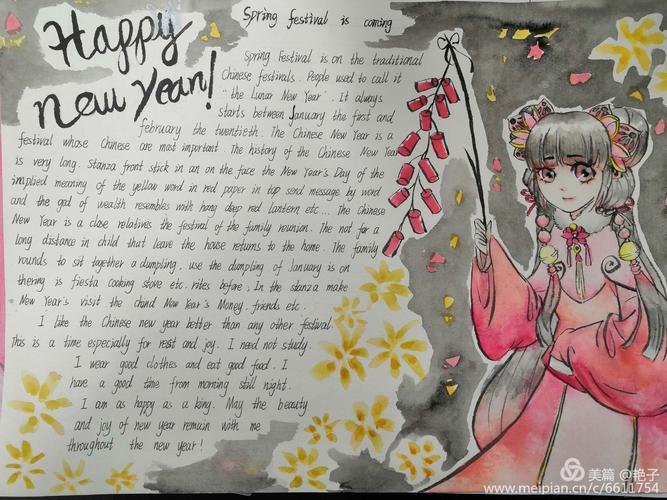 Happy
New Year!
Spring festival is coming
Spring Festival is on the traditional
Chinese festivals. People used to call it
"the Lunar New Year". It always
starts between January the first and
february the twentieth. The Chinese New Year is a
festival whose Chinese are mast important. The history of the Chinese New Year
is very long. Stanza front stick in an on the face the New Year's Day of the
implied meaning of the yellow word in red paper in top send message by word
and the god of wealth resembles with hang deep red lantern etc... The Chinese
New Year is a close relatives the festival of the family reunion. The not for a
long distance in child that leave the house returns to the home. The family
rounds to sit together a dumpling, use the dumpling of January is on
thering is fiesta cooking stove etc. rites before; In the stanza make
New Year's visit the chind New Year's Money. friends etc.
I like the Chinese new year better than any other festival.
This is a time especially for rest and joy. I need not study.
I wear good clothes and eat good food. I
have a good time from morning still night.
I am as happy as a king. May the beauty
and joy of new year remain with me
throughout the new year!
美篇 @艳子
www.meipian.cn/c/6611754